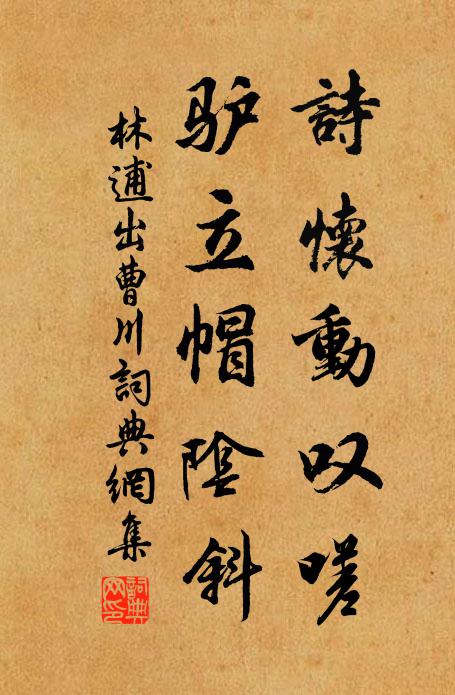 詩懷動叹嗟
驴立帽陰斜
林逋出曹川詞典網集
詞典網印